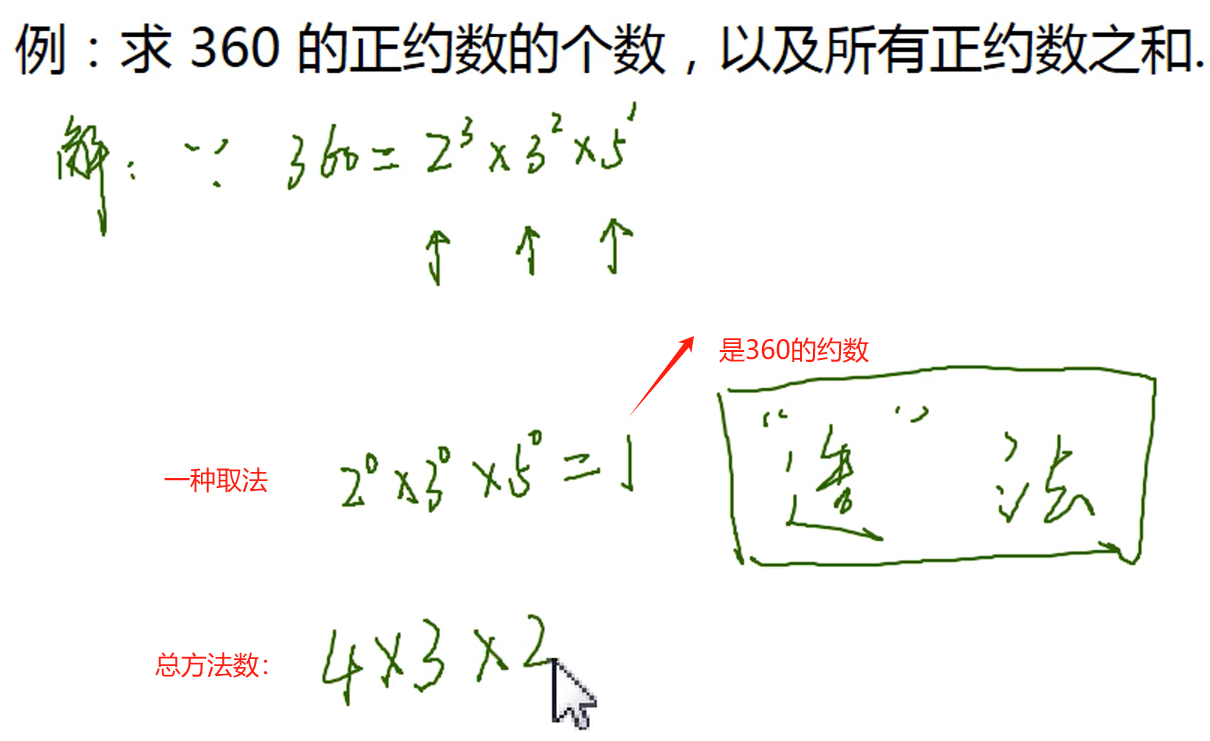 例：求 360 的正约数的个数，以及所有正约数之和.
解: ∵ 360 = 2³ × 3² × 5¹
是360的约数
一种取法 2⁰ × 3⁰ × 5⁰ = 1
“造” 法
总方法数: 4 × 3 × 2